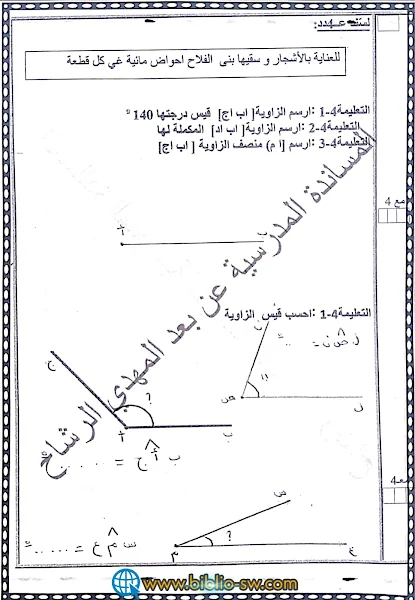 لسند عـدد:
للعناية بالأشجار و سقيها بنى الفلاح احواض مائية غي كل قطعة
التعليمة4-1 :ارسم الزاوية[ اب اج] قيس درجتها 140 °
التعليمة4-2 :ارسم الزاوية[ اب اد] المكملة لها
التعليمة4-3 :ارسم [ا م) منصف الزاوية [ اب اج]
مع 4
أ ب
التعليمة4-1 :احسب قيس الزاوية
ج ? أ ب
ب أ ج = .....°
مع4
س ? م ع
س م ع = .....°
المساندة المدرسية عن بعد المهدي الرشاح
www.biblio-sw.com